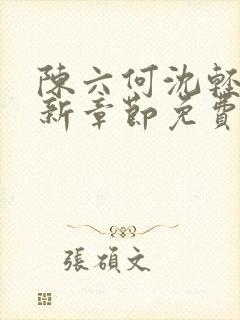 陳六何沈輕
新章節免費
張碩文